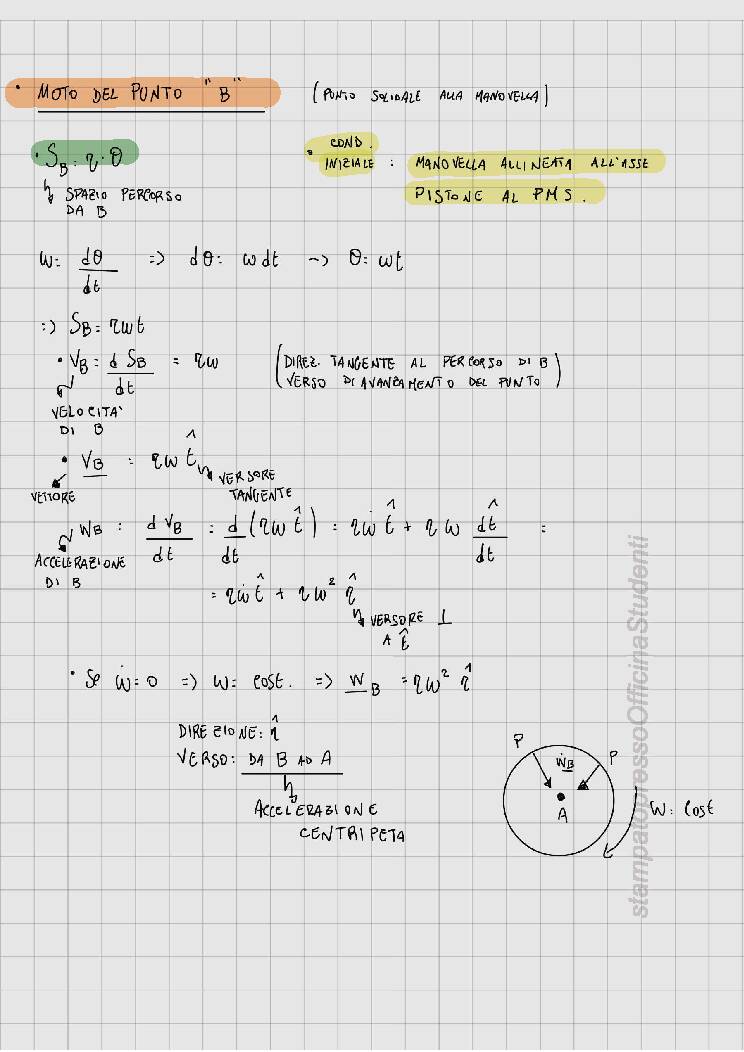 • MOTO DEL PUNTO "B" (PUNTO SOLIDALE ALLA MANOVELLA)
• S_B = r · θ
• COND. INIZIALE : MANOVELLA ALLINEATA ALL'ASSE
PISTONE AL PMS.
↳ SPAZIO PERCORSO
DA B
ω = dθ/dt => dθ = ω dt -> θ = ωt
=> S_B = rωt
• V_B = d S_B/dt = rω (DIREZ. TANGENTE AL PERCORSO DI B
VERSO DI AVANZAMENTO DEL PUNTO)
VELOCITA'
DI B
• V_B = rω t̂
VERSORE
TANGENTE
VETTORE
W_B = d V_B/dt = d/dt (rω t̂) = rω̇ t̂ + rω dt̂/dt =
ACCELERAZIONE
DI B
= rω̇ t̂ + rω² r̂
↳ VERSORE ⊥
A t̂
• Se ω̇ = 0 => ω = cost. => W_B = rω² r̂
DIREZIONE: r̂
VERSO: DA B AD A
↳ ACCELERAZIONE
CENTRIPETA
P W_B P
A
ω = cost
stampatopressoOfficinaStudenti